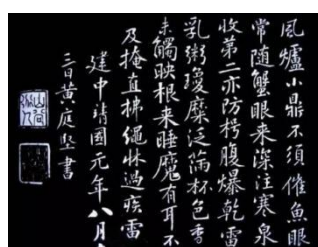 風爐小鼎不須催魚眼
常随蟹眼来深注寒泉
收第二亦防枵腹爆乾雷
乳粥瓊糜泛滿杯色香
味觸映根来睡魔有耳不
及掩直拂繩牀過疾雷
建中靖國元年八月
三日黃庭堅書
山谷道人